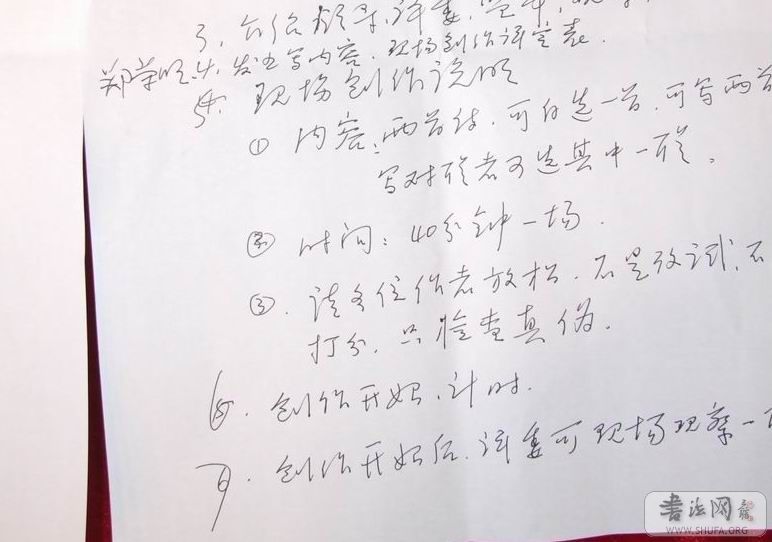 3、介绍领导、评委、
郑荣明头,发出写内容,现场创作评定表.
5. 现场创作说明
① 内容:两首诗,可自选一首,可写两首
写对联者可选其中一联.
② 时间:40分钟一场.
③. 请各位作者放松.不是考试,不
打分.只检查真伪.
6. 创作开始、计时.
7. 创作开始后,评委可现场观察一
書法网
WWW.SHUFA.ORG